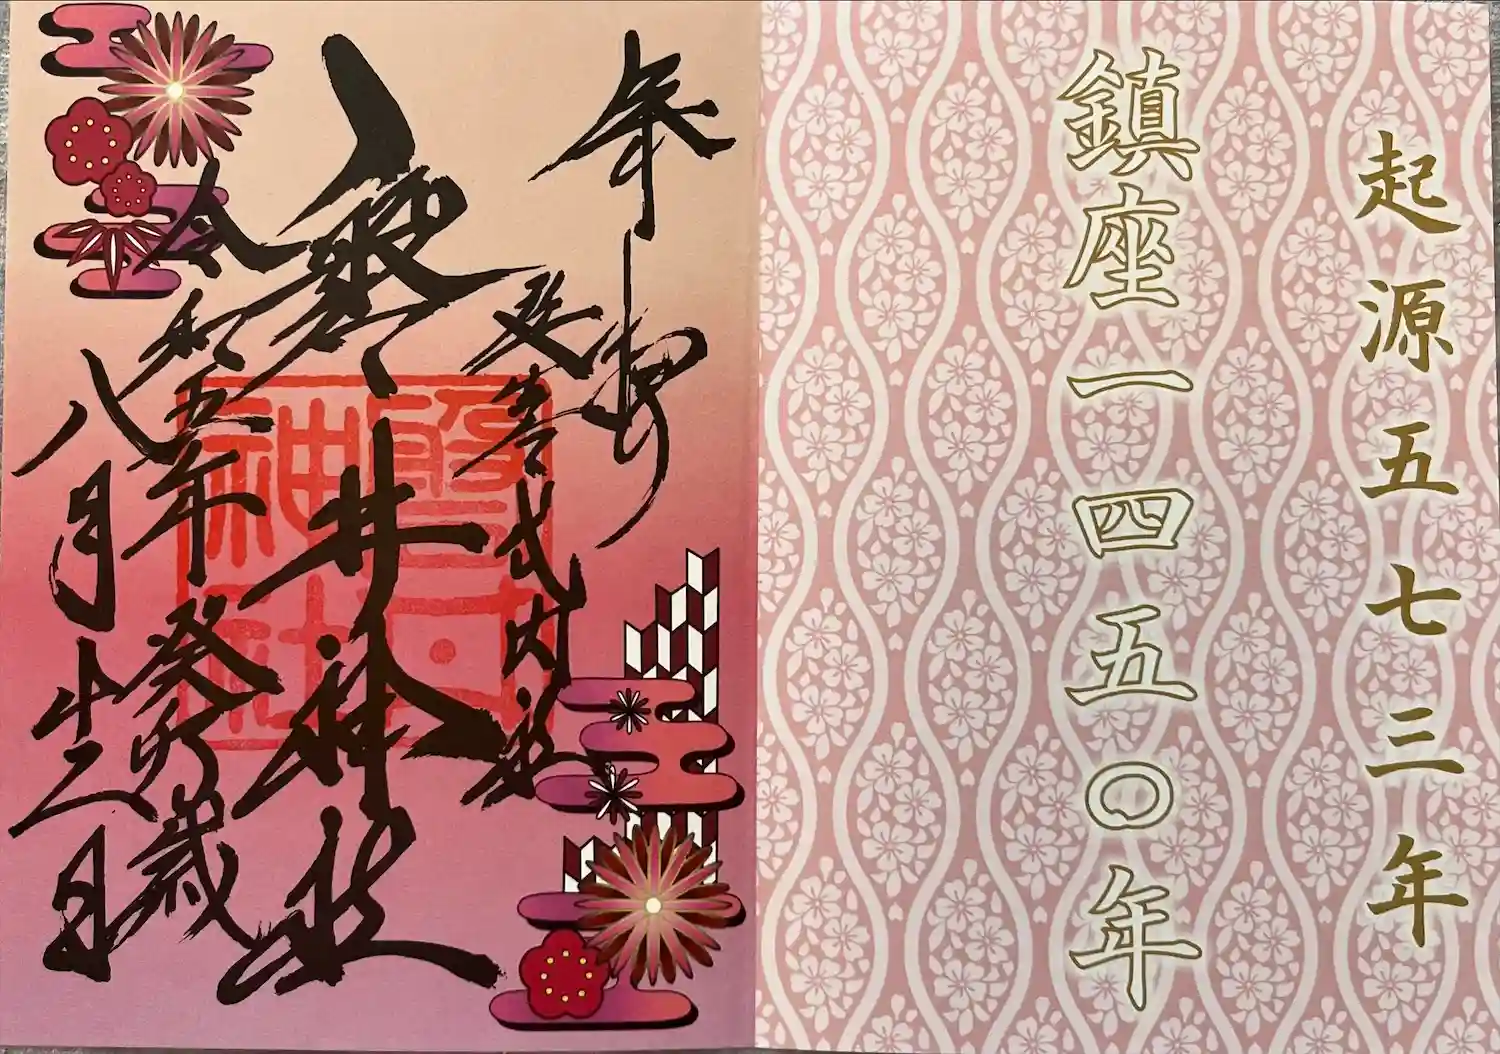 起源五七三年
鎮座一四五〇年
奉拝
延喜式内社
磐井神社
令和五年癸卯歳
八月廿二日
磐井
神社